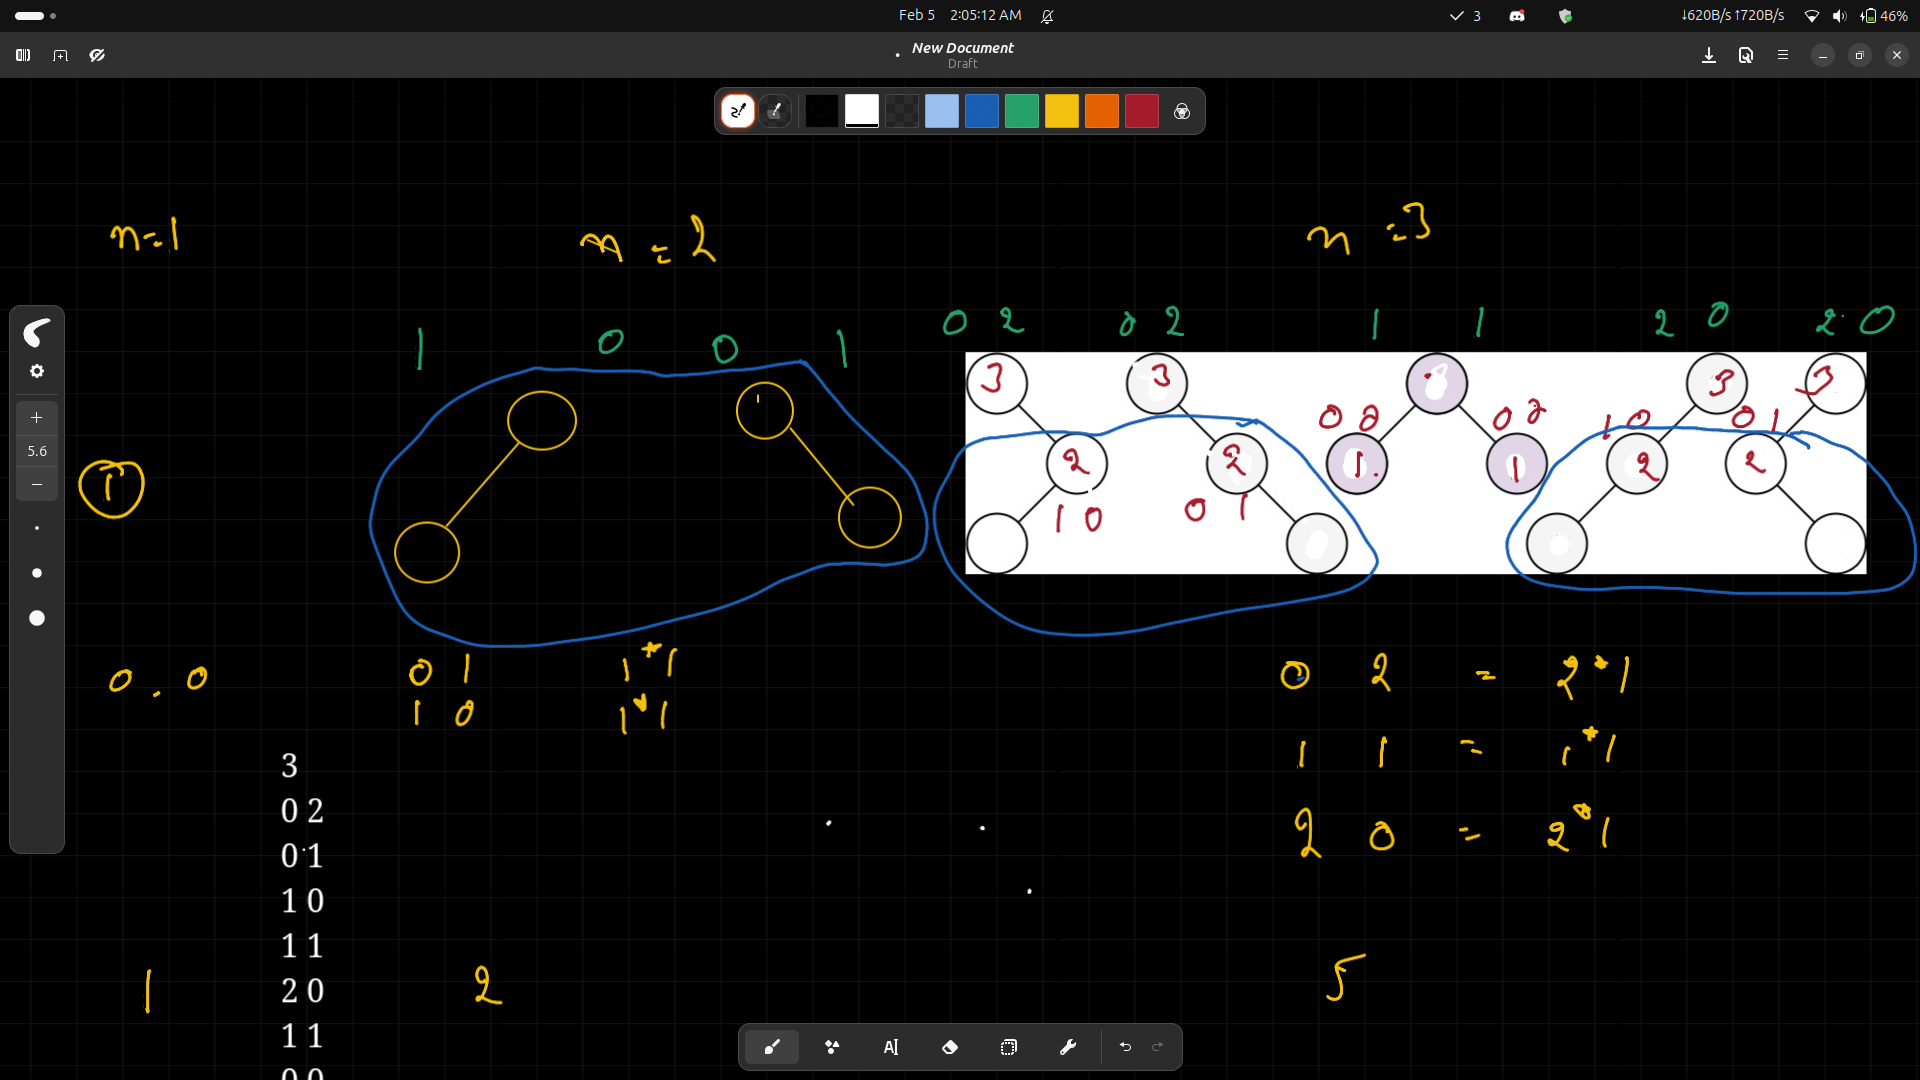 Feb 5 2:05:12 AM
3
↓620B/s ↑720B/s
46%
New Document
Draft
n=1
n = 2
n = 3
1 0 0 1
0 2 0 2 1 1 2 0 2 0
3 3 3 3
0 2 0 2 1 0 0 1
2 2 1 1 2 2
1 0 0 1
5.6
1
0 . 0
0 1 1*1
1 0 1*1
0 2 = 2*1
1 1 = 1*1
2 0 = 2*1
3
0 2
0 1
1 0
1 1
2 0
1 1
0 0
1 2 5